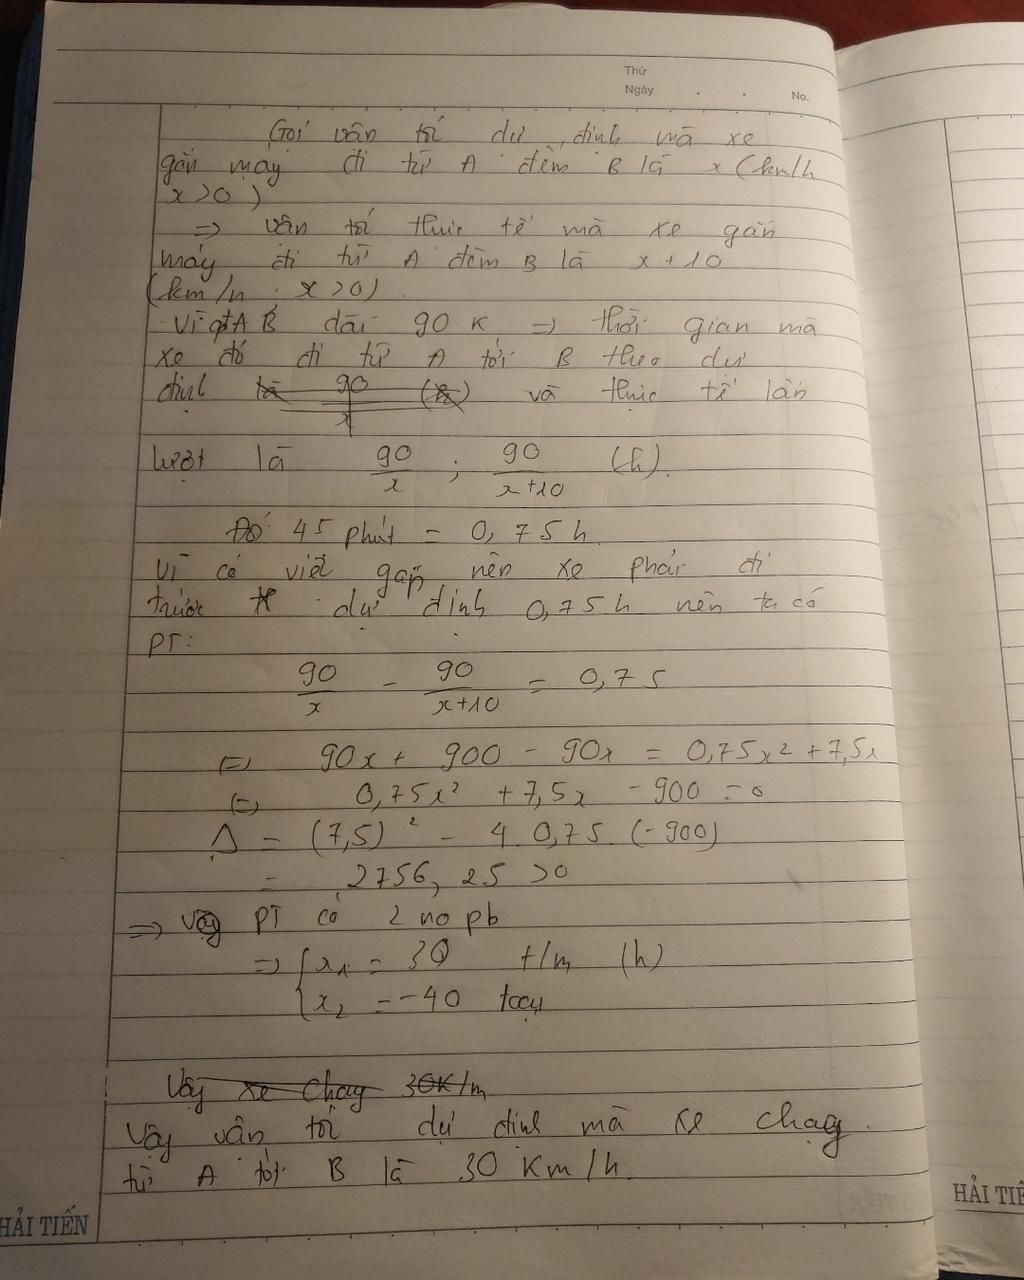 Thứ
Ngày . . No.
Gọi vận tốc dự định mà xe
gắn máy đi từ A đến B là x (km/h
x>0)
=> vận tốc thực tế mà xe gắn
máy đi từ A đến B là x + 10
(km/h . x>0)
Vì qđ AB dài 90 K => thời gian mà
xe đó đi từ A tới B theo dự
định là 90/x (h) và thực tế lần
lượt là 90/x ; 90/x+10 (h).
Đổi 45 phút = 0,75h
Vì có việc gấp nên xe phải đi
trước dự định 0,75h nên ta có
PT:
90/x - 90/x+10 = 0,75
(=) 90x + 900 - 90x = 0,75x² + 7,5x
(=) 0,75x² + 7,5x - 900 = 0
Δ = (7,5)² - 4. 0,75. (-900)
= 2756,25 >0
=> Vậy PT có 2 no pb
=> { x₁ = 30 t/m (h)
x₂ = -40 loại
Vậy xe chạy 30K/m
Vậy vận tốc dự định mà xe chạy
từ A tới B là 30 Km/h.
HẢI TIẾN
HẢI TIẾ